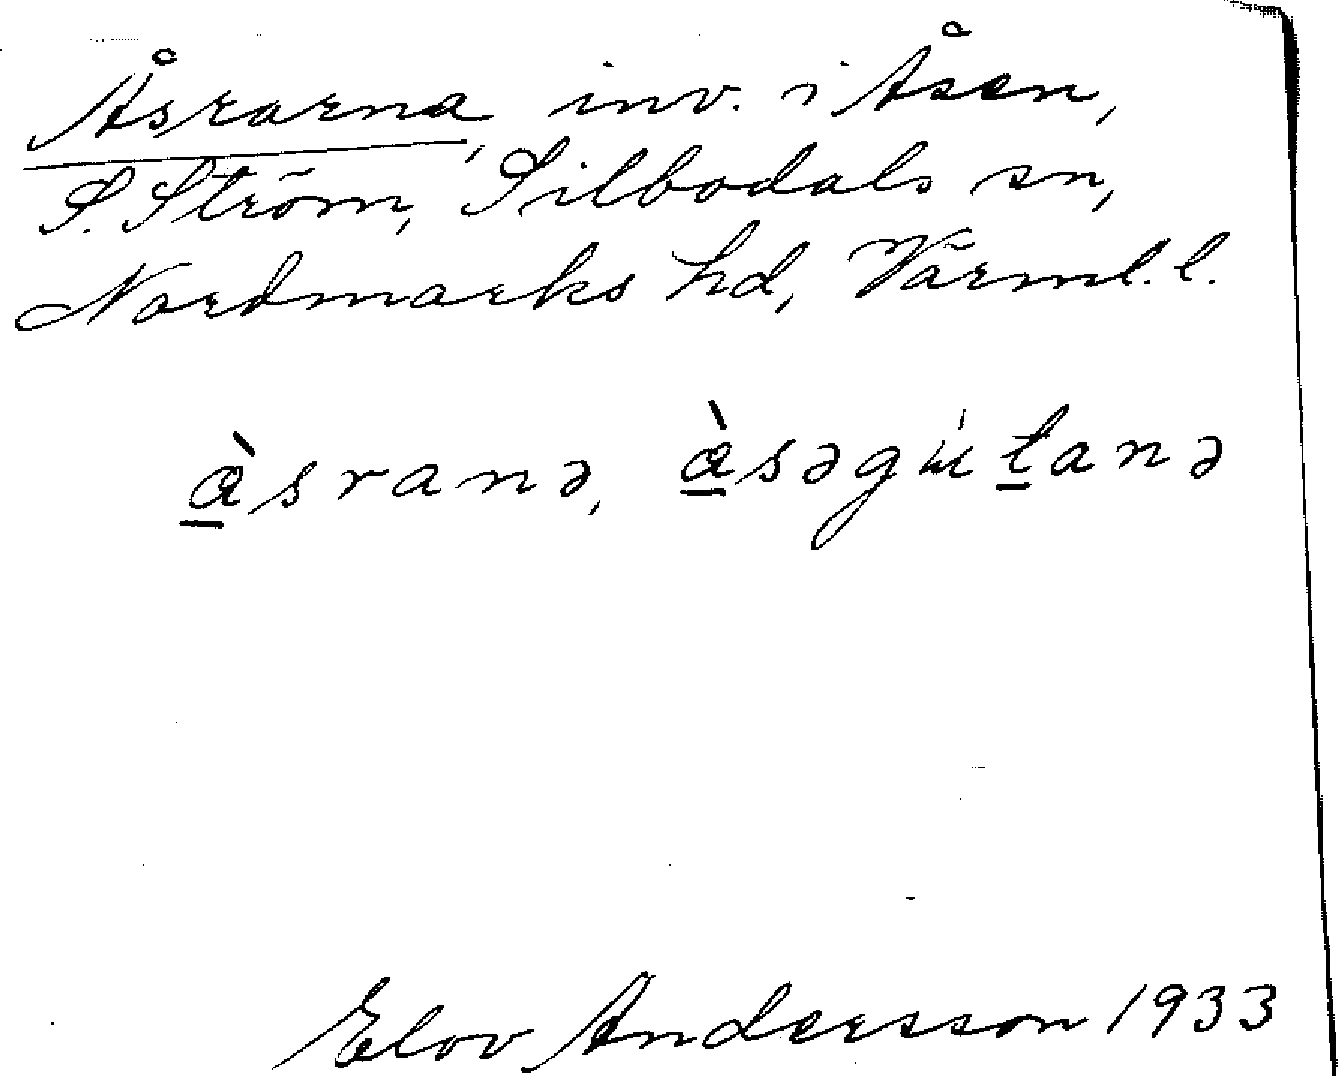 Åsrarna, inv. i Åsen,
S. Ström, Silbodals sn,
Nordmarks hd, Värml. l.
àsranə, àsəgúbbanə
Elov Andersson 1933